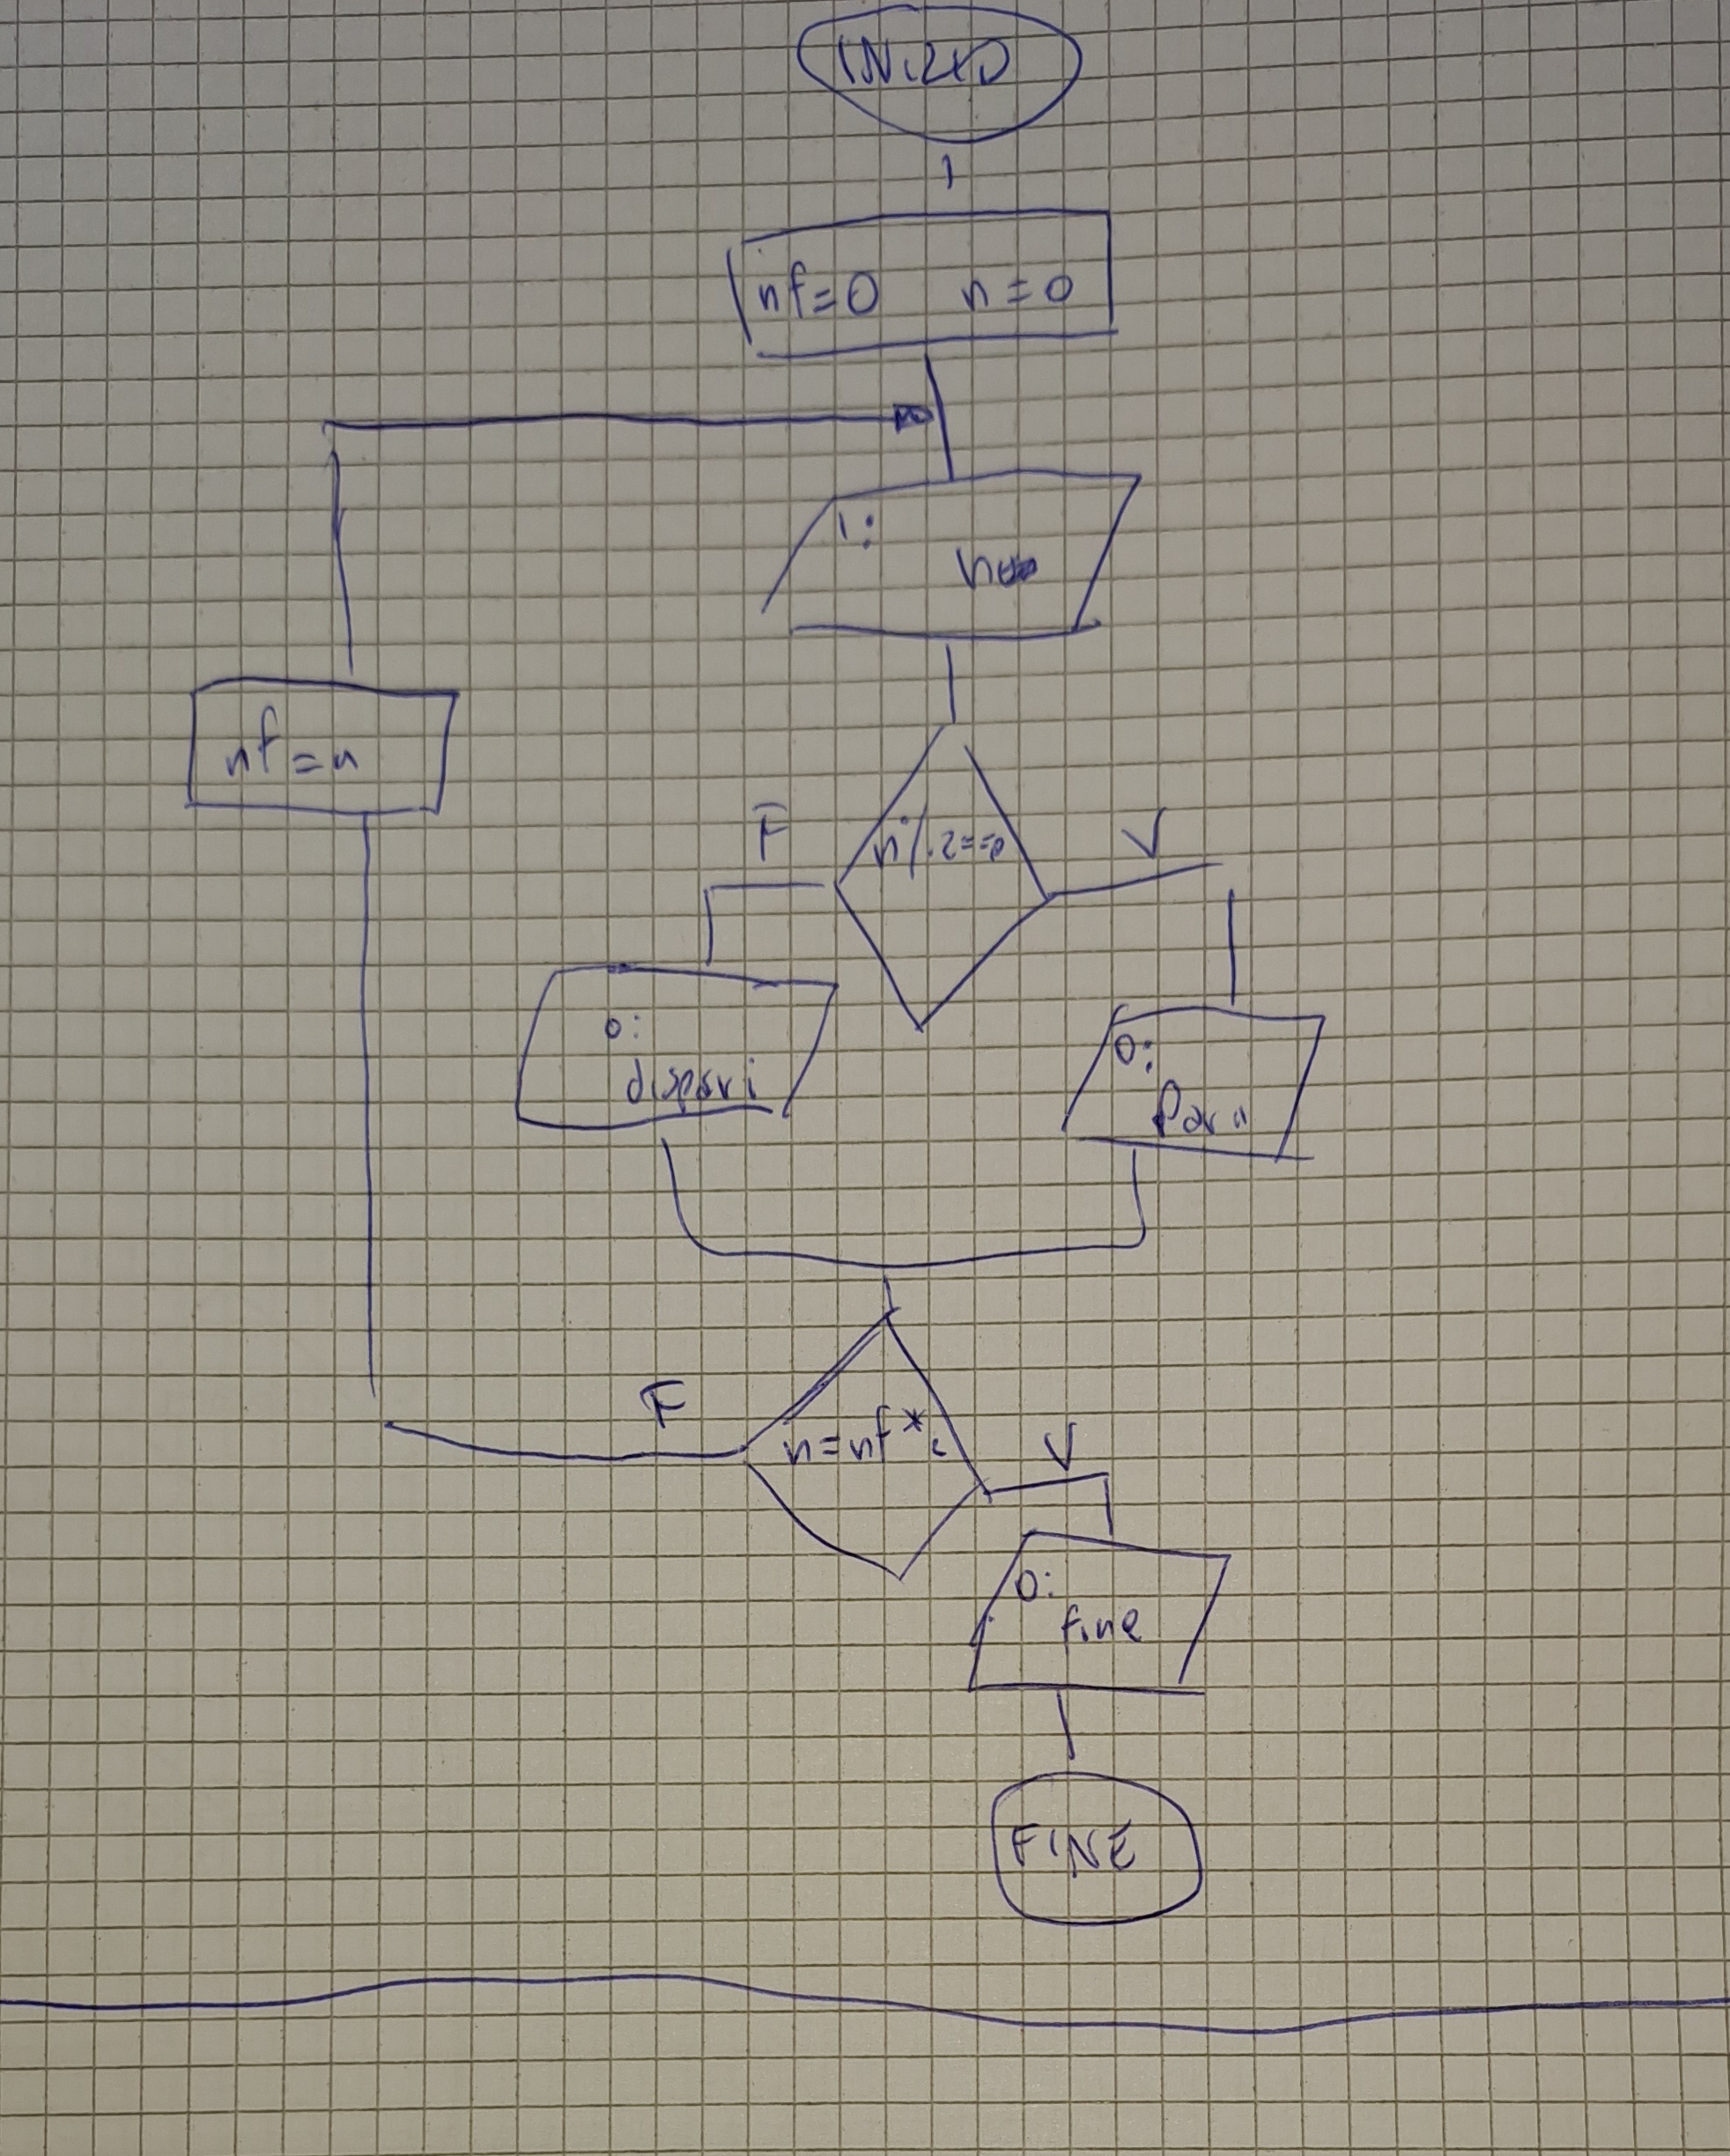 INIZIO
nf=0 n=0
I:
nf=n
F
n%2==0
V
O:
dispari
O:
Pari
F
n=nf*
V
O:
fine
FINE